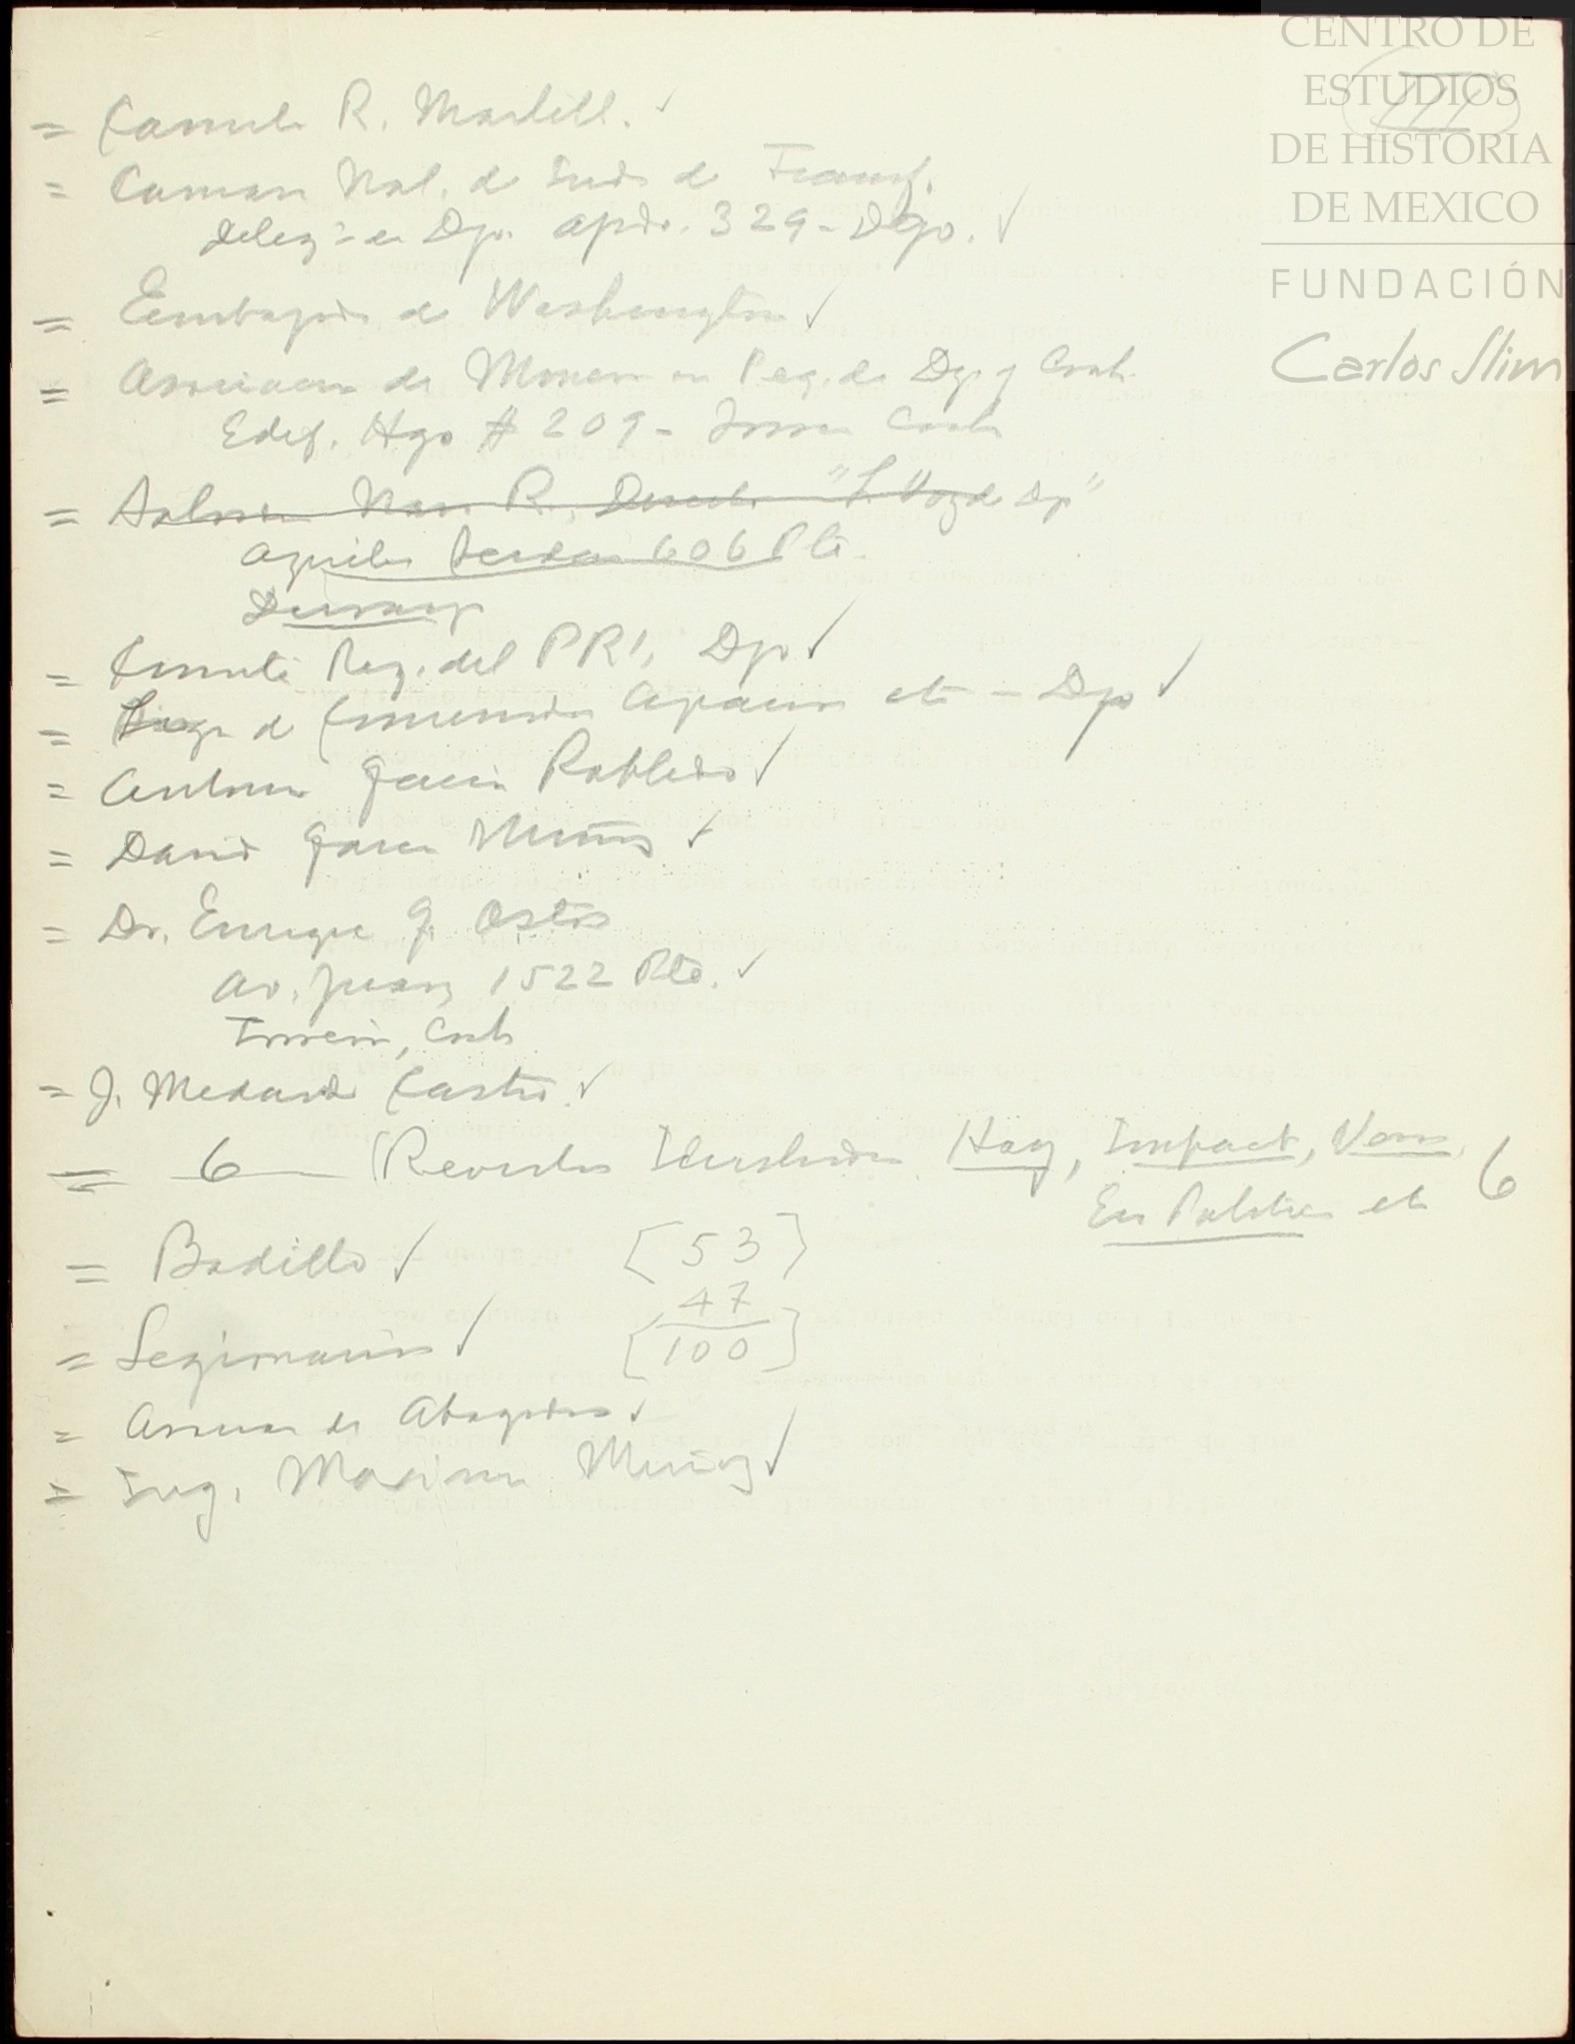 CENTRO DE
ESTUDIOS
DE HISTORIA
DE MEXICO
FUNDACIÓN
Carlos Slim
III
= Camilo R. Martell. ✓
= Camara Nal. de Inds de Transf.
Deleg. en Dgo. Apdo. 329 - Dgo. ✓
= Embajada de Washington ✓
= Asociacion de Mineros en Peq. de Dgo y Coah.
Edif. Hgo # 209 - Torreon Coah
= Salvador Nava R., "La Voz de Dgo"
Aquiles Serdan 606 Pte.
Durango
= Comité Reg. del PRI, Dgo ✓
= Liga de Comunidades Agrarias etc - Dgo ✓
= Antonio Garcia Robledo ✓
= David Garcia Muñoz ✓
= Dr. Enrique G. Ostos
Av. Juarez 1522 Pte. ✓
Torreón, Coah
= J. Medardo Castro. ✓
= 6 (Revistas Ilustradas Hoy, Impacto, Verso, 6
En Politica etc
= Badillo ✓ [53]
47
= Legionarios ✓ [100]
= Asociacion de Abogados ✓
= Ing. Maximo Muñoz ✓